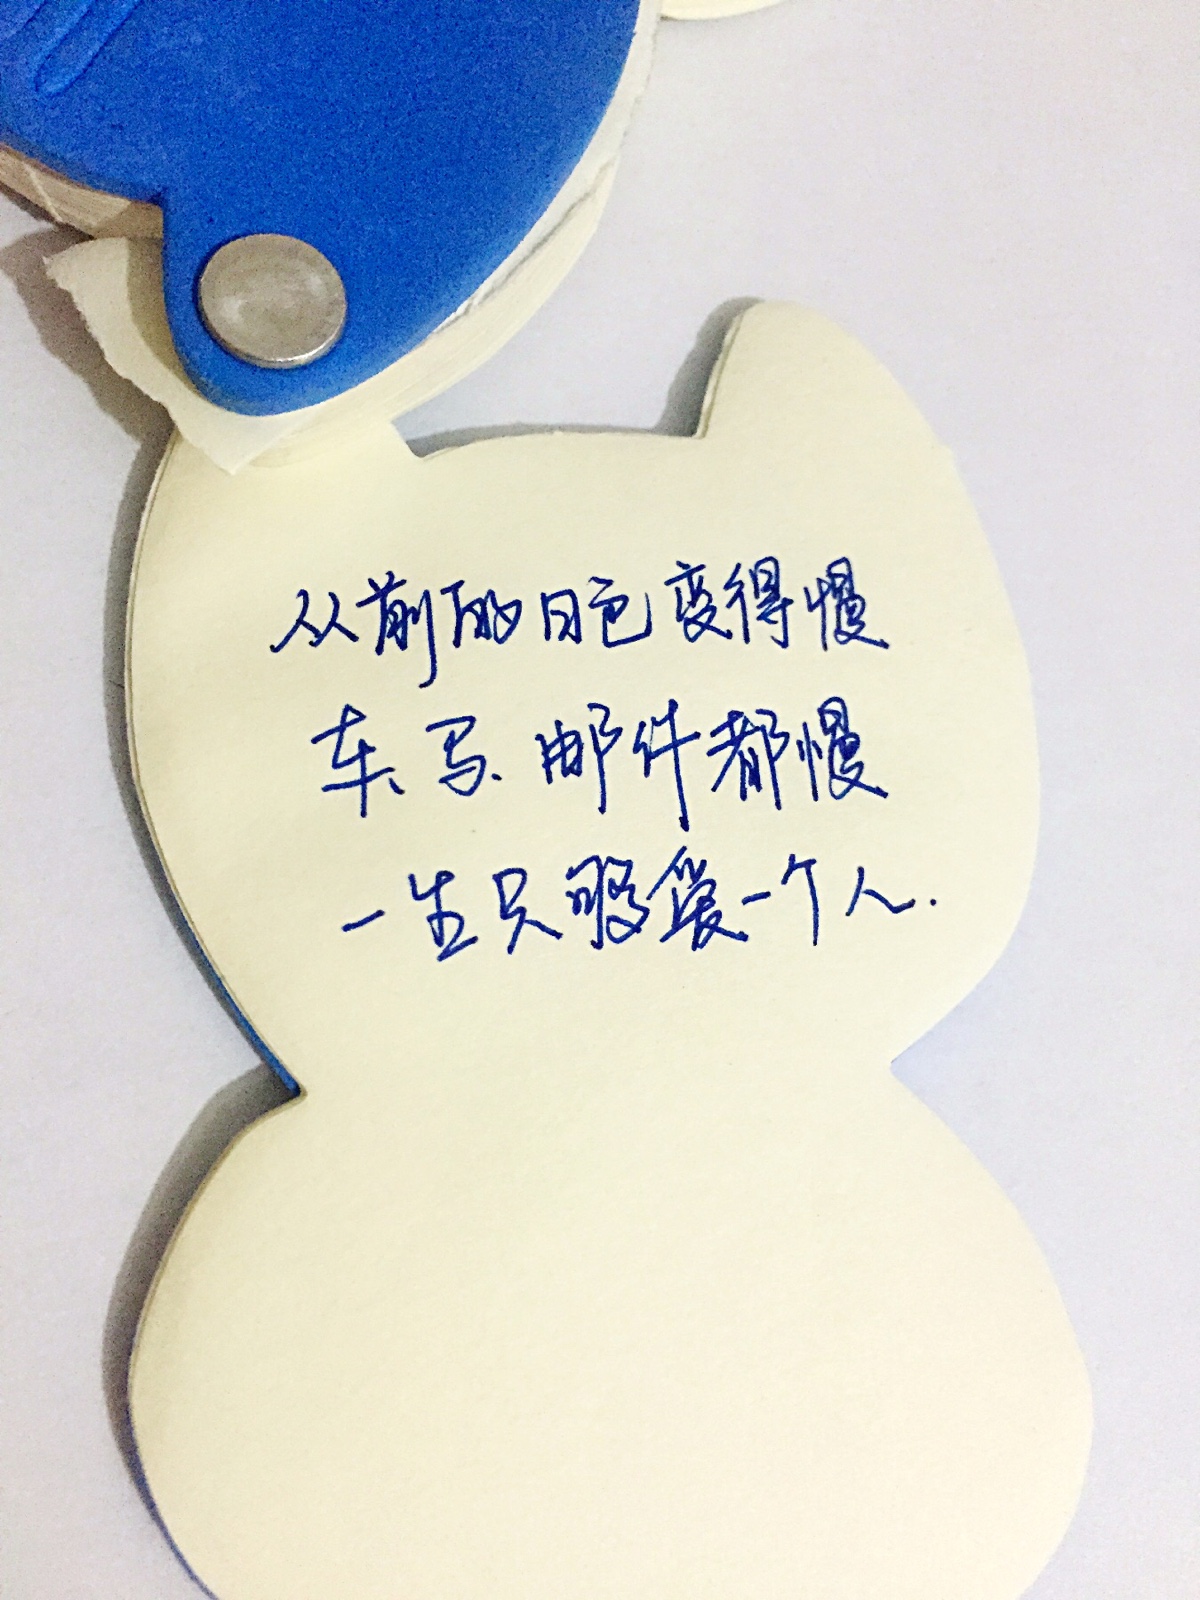 从前的日色变得慢
车、马、邮件都慢
一生只够爱一个人.